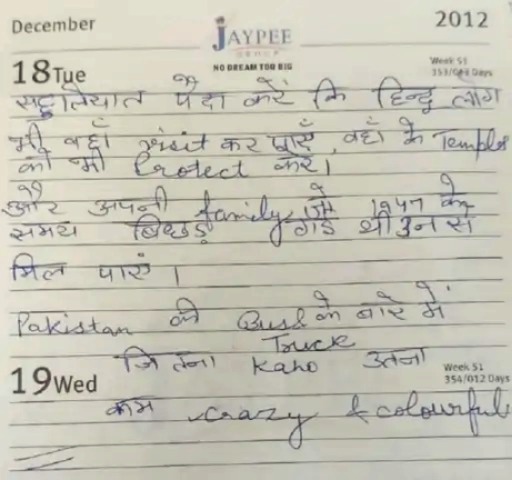 December
2012
JAYPEE
GROUP
NO DREAM TOO BIG
18 Tue
Week 51
353/013 Days
सहुलियात पैदा करें कि हिन्दू लोग
भी वहाँ visit कर पाएँ, वहाँ के Temples
को भी Protect करें।
और अपनी family जो 1947 के
समय बिछड़ गई थी उन से
मिल पाएं।
Pakistan की Bus के बारे में
Truck
जितना kaho उतना
19 Wed
Week 51
354/012 Days
कम crazy & colourful